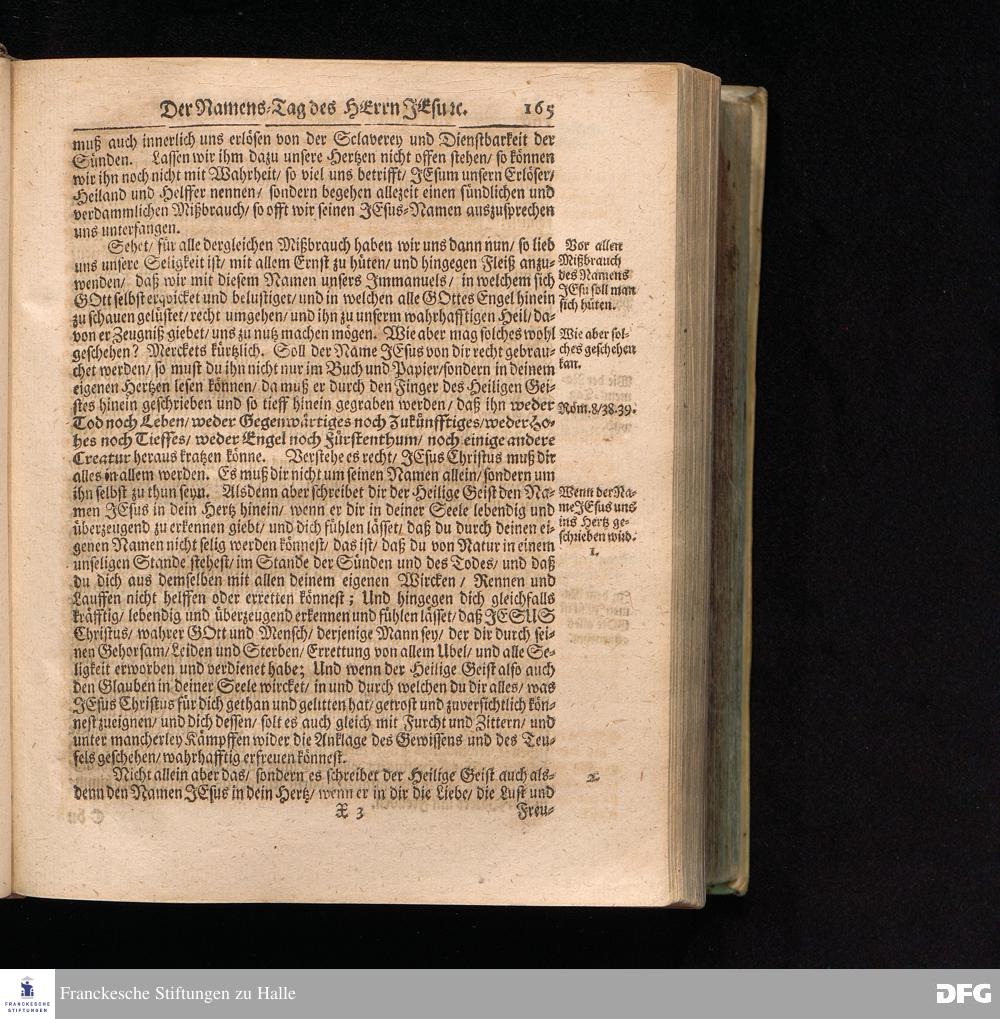 Der Namens-Tag des HErrn JEsu ꝛc. 165
muß auch innerlich uns erlösen von der Sclaverey und Dienstbarkeit der
Sünden. Lassen wir ihm dazu unsere Hertzen nicht offen stehen/ so können
wir ihn noch nicht mit Wahrheit/ so viel uns betrifft/ JEsum unsern Erlöser/
Heiland und Helffer nennen/ sondern begehen allezeit einen sündlichen und
verdammlichen Mißbrauch/ so offt wir seinen JEsus-Namen auszusprechen
uns unterfangen.
Sehet/ für alle dergleichen Mißbrauch haben wir uns dann nun/ so lieb
uns unsere Seligkeit ist/ mit allem Ernst zu hüten/ und hingegen Fleiß anzu-
wenden/ daß wir mit diesem Namen unsers Immanuels/ in welchem sich
GOtt selbst erquicket und belustiget/ und in welchen alle GOttes Engel hinein
zu schauen gelüstet/ recht umgehen/ und ihn zu unserm wahrhafftigen Heil/ da-
von er Zeugniß giebet/ uns zu nutz machen mögen. Wie aber mag solches wohl
geschehen? Merckets kürtzlich. Soll der Name JEsus von dir recht gebrau-
chet werden/ so must du ihn nicht nur im Buch und Papier/ sondern in deinem
eigenen Hertzen lesen können/ da muß er durch den Finger des Heiligen Gei-
stes hinein geschrieben und so tieff hinein gegraben werden/ daß ihn weder
Tod noch Leben/ weder Gegenwärtiges noch Zukünfftiges/ weder Ho-
hes noch Tieffes/ weder Engel noch Fürstenthum/ noch einige andere
Creatur heraus kratzen könne. Verstehe es recht/ JEsus Christus muß dir
alles in allem werden. Es muß dir nicht um seinen Namen allein/ sondern um
ihn selbst zu thun seyn. Alsdenn aber schreibet dir der Heilige Geist den Na-
men JEsus in dein Hertz hinein/ wenn er dir in deiner Seele lebendig und
überzeugend zu erkennen giebt/ und dich fühlen lässet/ daß du durch deinen ei-
genen Namen nicht selig werden könnest/ das ist/ daß du von Natur in einem
unseligen Stande stehest/ im Stande der Sünden und des Todes/ und daß
du dich aus demselben mit allen deinem eigenen Wircken/ Rennen und
Lauffen nicht helffen oder erretten könnest; Und hingegen dich gleichfalls
kräfftig/ lebendig und überzeugend erkennen und fühlen lässet/ daß JESUS
Christus/ wahrer GOtt und Mensch/ derjenige Mann sey/ der dir durch sei-
nen Gehorsam/ Leiden und Sterben/ Errettung von allem Ubel/ und alle Se-
ligkeit erworben und verdienet habe; Und wenn der Heilige Geist also auch
den Glauben in deiner Seele wircket/ in und durch welchen du dir alles/ was
JEsus Christus für dich gethan und gelitten hat/ getrost und zuversichtlich kön-
nest zueignen/ und dich dessen/ solt es auch gleich mit Furcht und Zittern/ und
unter mancherley Kämpffen wider die Anklage des Gewissens und des Teu-
fels geschehen/ wahrhafftig erfreuen könnest.
Nicht allein aber das/ sondern es schreibet der Heilige Geist auch als-
denn den Namen JEsus in dein Hertz/ wenn er in dir die Liebe/ die Lust und
X 3 Freu-
Vor allen
Mißbrauch
des Namens
JEsu soll man
sich hüten.
Wie aber sol-
ches geschehen
kan.
Röm. 8/38.39.
Wenn der Na-
me JEsus uns
ins Hertz ge-
schrieben wird.
1.
2.
FRANCKESCHE
STIFTUNGEN
Franckesche Stiftungen zu Halle
DFG